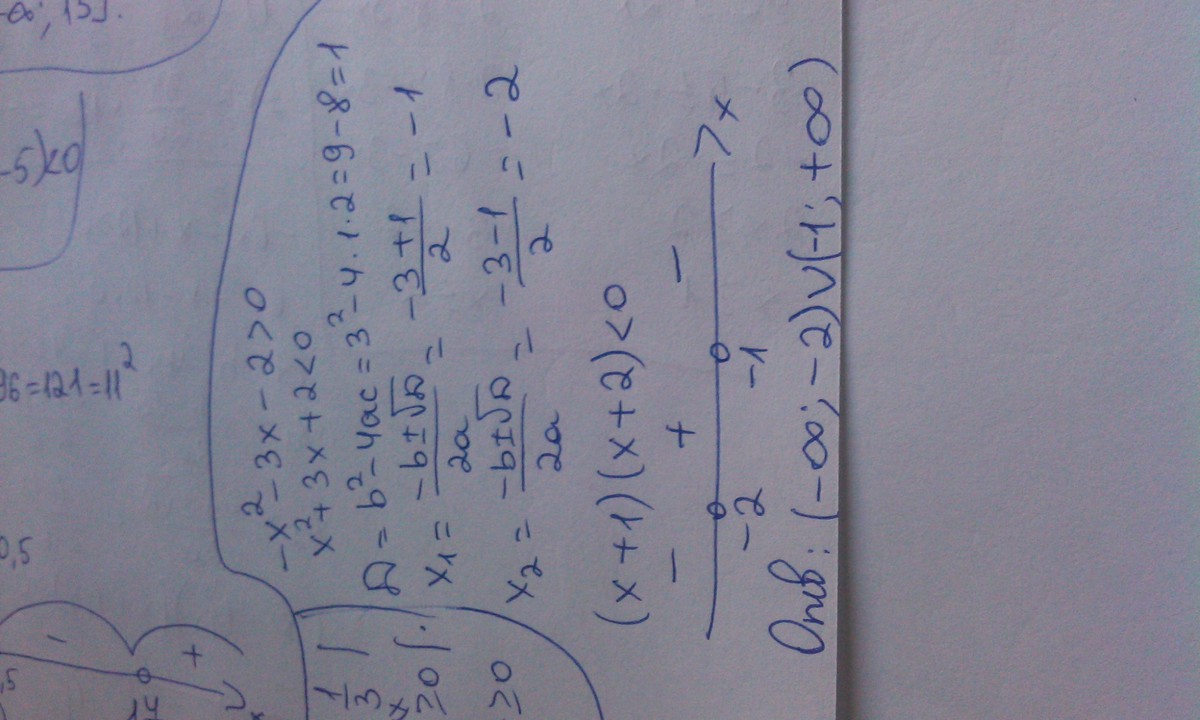 -∞; 15].
-5)<0
96=121=11²
0,5
- +
,5 14 x
1/3
x
≥0
≥0
-x²-3x-2>0
x²+3x+2<0
D=b²-4ac=3²-4·1·2=9-8=1
x₁= (-b±√D)/2a = (-3+1)/2 = -1
x₂= (-b±√D)/2a = (-3-1)/2 = -2
(x+1)(x+2)<0
- + -
-2 -1 x
Отв: (-∞; -2)∪(-1; +∞)